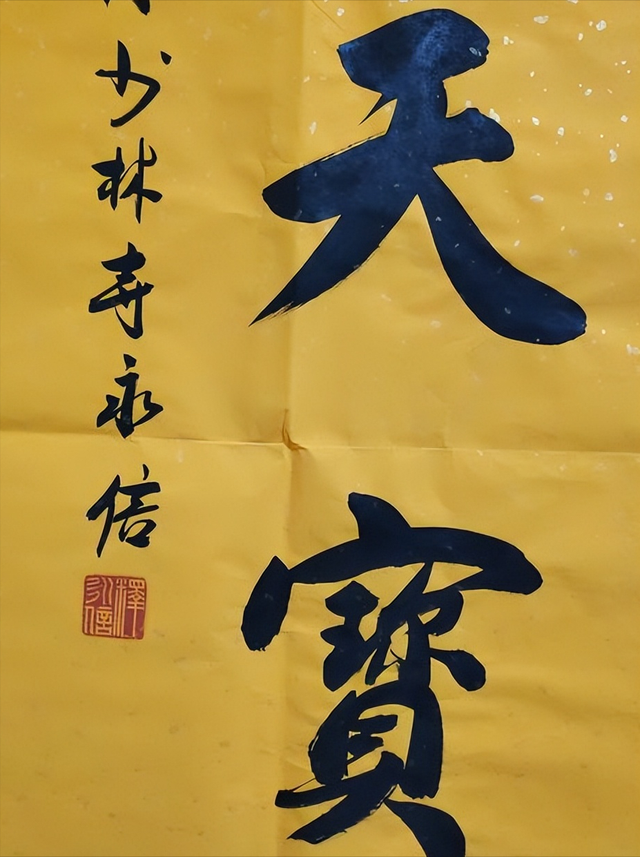 天寶
少林寺永信
釋永信